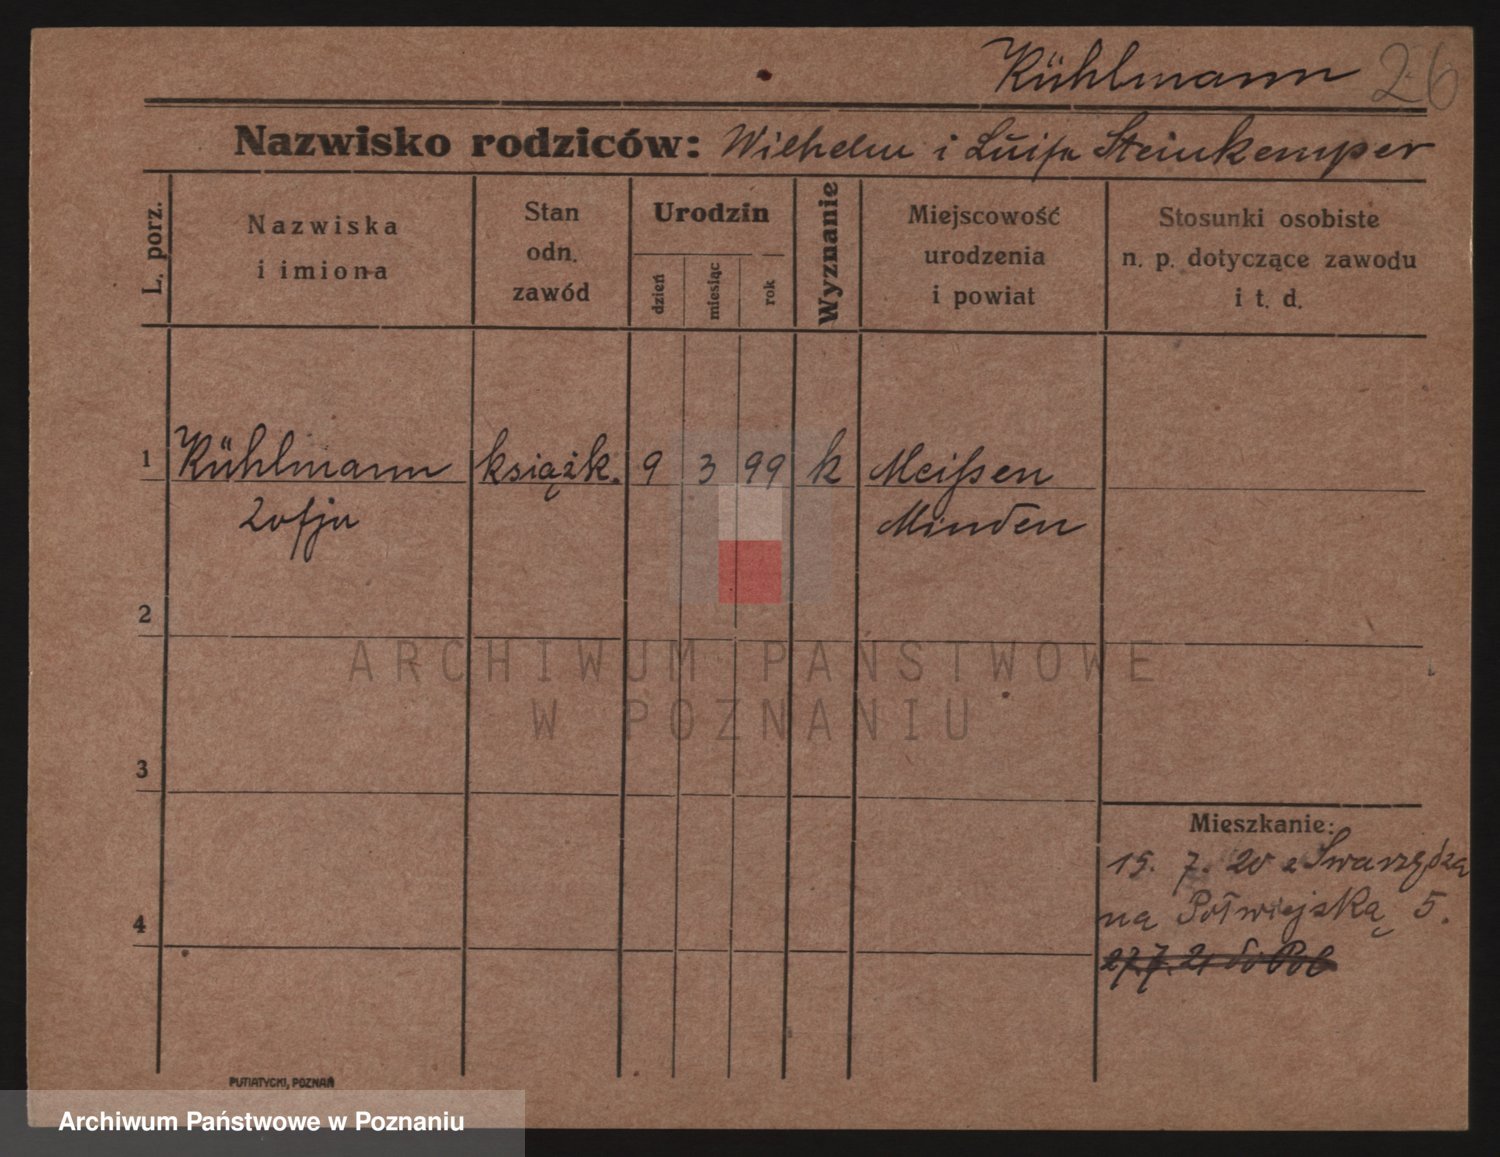 Kühlmann 26
Nazwisko rodziców: Wilhelm i Luisa Steinkemper
L. porz.
Nazwiska
i imiona
Stan
odn.
zawód
Urodzin
dzień
miesiąc
rok
Wyznanie
Miejscowość
urodzenia
i powiat
Stosunki osobiste
n. p. dotyczące zawodu
i t. d.
1 Kühlmann książk. 9 3 99 k Meißen
Zofja Minden
2
ARCHIWUM PAŃSTWOWE
W POZNANIU
3
Mieszkanie:
15. 7. 20 z Swarzędza
na Półwiejską 5.
4
27.7.21 do
PUTIATYCKI, POZNAŃ
Archiwum Państwowe w Poznaniu